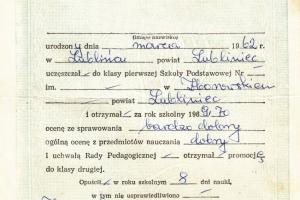 (Imię i nazwisko)
urodzony dnia marca 1962 r.
w Lublińcu powiat Lubliniec
uczęszczał do klasy pierwszej Szkoły Podstawowej Nr
im. w Zborowskiem
powiat Lubliniec
i otrzymał za rok szkolny 1969/70
ocenę ze sprawowania bardzo dobry
ogólną ocenę z przedmiotów nauczania dobry
i uchwałą Rady Pedagogicznej otrzymał promocję
do klasy drugiej.
Opuścił w roku szkolnym 8 dni nauki,
w tym nie usprawiedliwiono